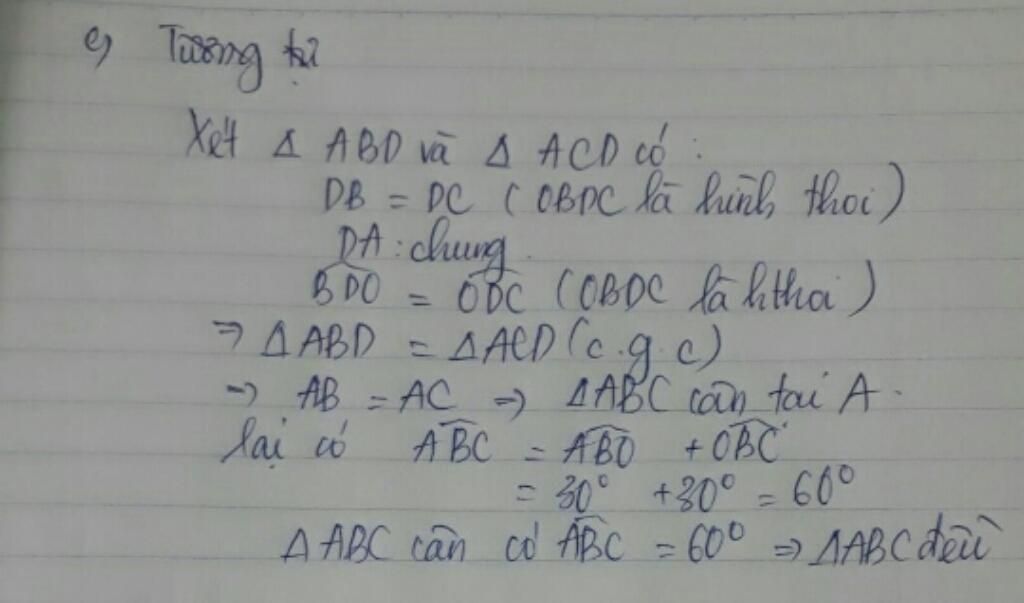 c) Tương tự
Xét Δ ABD và Δ ACD có :
DB = DC ( OBDC là hình thoi )
DA : chung.
BDO = ODC ( OBDC là hthoi )
⇒ ΔABD = ΔACD ( c.g.c )
⇒ AB = AC ⇒ ΔABC cân tại A.
lại có ABC = ABO + OBC
= 30° + 30° = 60°
ΔABC cân có ABC = 60° ⇒ ΔABC đều